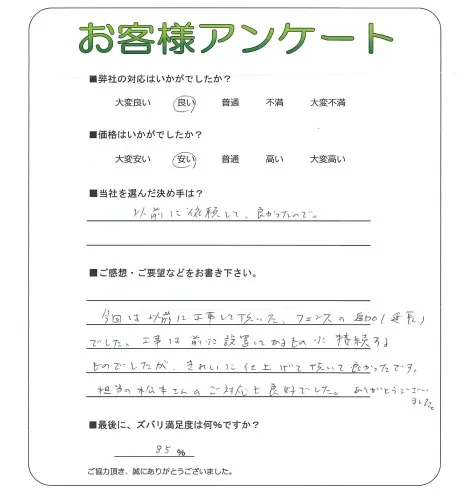 お客様アンケート
■弊社の対応はいかがでしたか？
大変良い 良い 普通 不満 大変不満
■価格はいかがでしたか？
大変安い 安い 普通 高い 大変高い
■当社を選んだ決め手は？
以前に依頼して、良かったので。
■ご感想・ご要望などをお書き下さい。
今回は以前に工事して頂いた、フェンスの
でした。工事は前に設置してあるものに接続する
ものでしたが、きれいに仕上げて頂いて良かったです。
担当の松本さんのご対応も良好でした。ありがとうござい
ました。
■最後に、ズバリ満足度は何％ですか？
85 %
ご協力頂き、誠にありがとうございました。